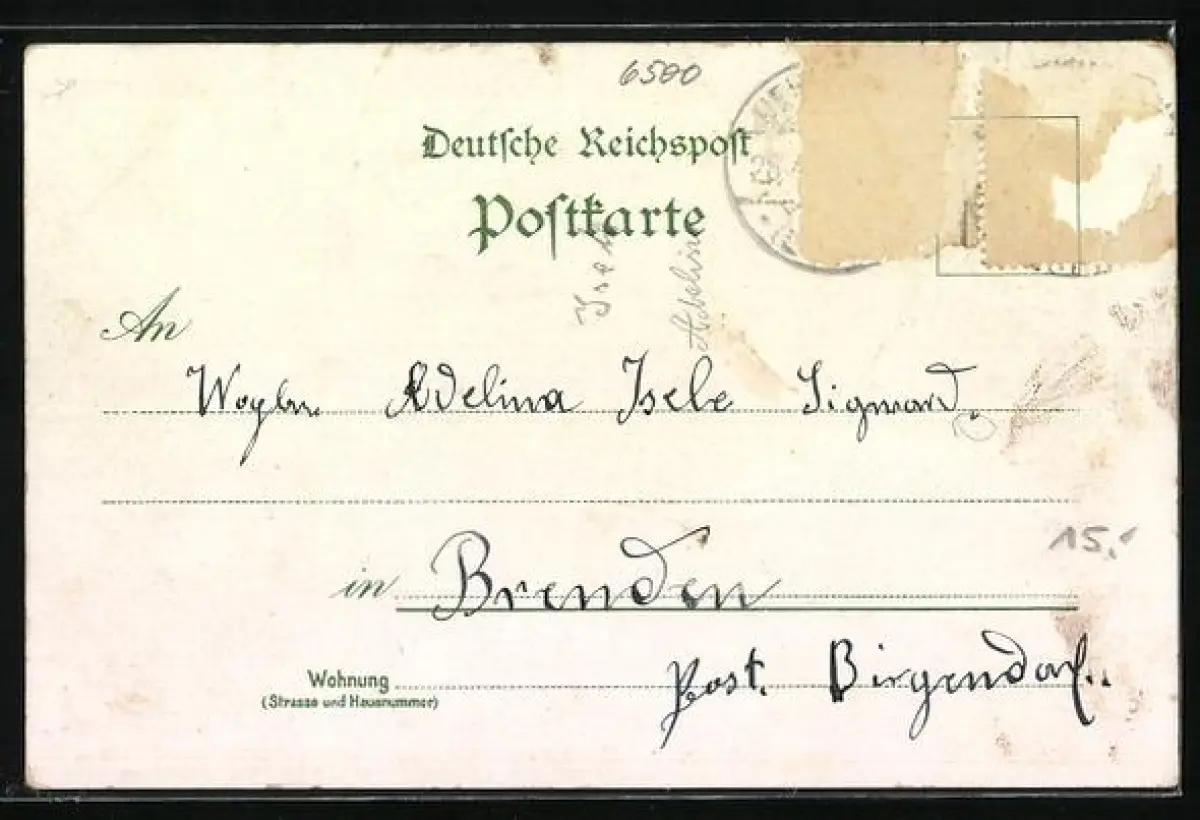 6500
Deutsche Reichspost
Postkarte
An
Adelina Isele Sigmard.
in Brenden
15.-
Post. Birgendorf..
Wohnung
(Strasse und Hausnummer)